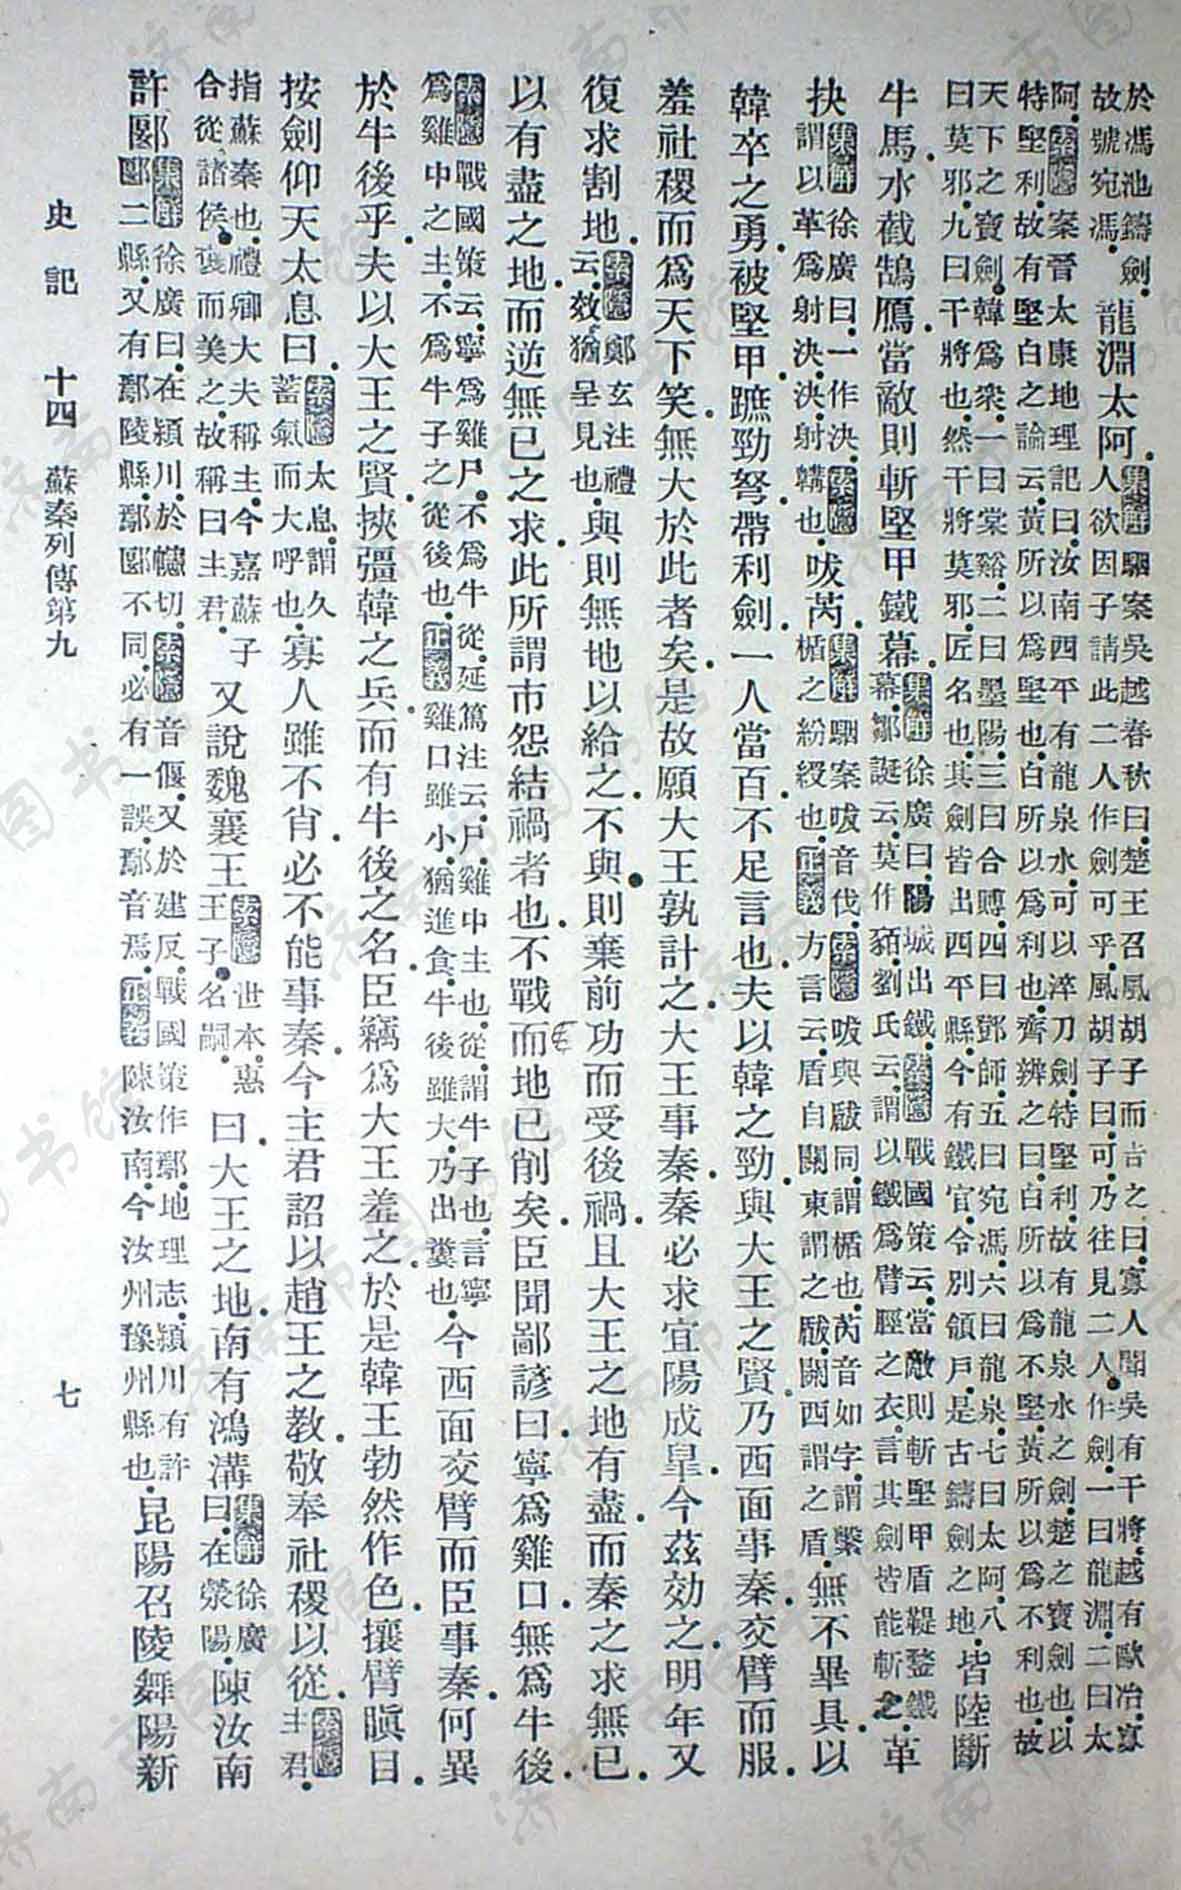 於馮池鑄劍.故號宛馮.龍淵太阿.集解駰案吳越春秋曰.楚王召風胡子而告之曰.寡人聞吳有干將.越有歐冶.寡人欲因子請此二人作劍可乎.風胡子曰.可.乃往見二人.作劍.一曰龍淵.二曰太
阿.索隱案晉太康地理記曰.汝南西平有龍泉水.可以淬刀劍.特堅利.故有龍泉水之劍.楚之寶劍也.以特堅利.故有堅白之論云.黃所以爲堅也.白所以爲利也.齊辨之曰.白所以爲不堅.黃所以爲不利也.故
天下之寶劍.韓爲衆.一曰棠谿.二曰墨陽.三曰合賻.四曰鄧師.五曰宛馮.六曰龍泉.七曰太阿.八曰莫邪.九曰干將也.然干將莫邪.匠名也.其劍皆出西平縣.今有鐵官.令別領戶.是古鑄劍之地.皆陸斷
牛馬.水截鵠鴈.當敵則斬堅甲鐵幕.集解徐廣曰.陽城出鐵.索隱戰國策云.當敵則斬堅甲盾鞮鍪鐵幕.鄒誕云.莫作貊.劉氏云.謂以鐵爲臂脛之衣.言其劍皆能斬之.革
抉集解徐廣曰.一作決.索隱謂以革爲射決.決.射韝也.㕹芮.集解駰案㕹音伐.索隱㕹與瞂同.謂楯也.芮音如字.謂繫楯之紛綬也.正義方言云.盾自關東謂之瞂.關西謂之盾.無不畢具.以
韓卒之勇.被堅甲.蹠勁弩.帶利劍.一人當百.不足言也.夫以韓之勁.與大王之賢.乃西面事秦.交臂而服.
羞社稷而爲天下笑.無大於此者矣.是故願大王孰計之.大王事秦.秦必求宜陽成皐.今茲効之.明年又
復求割地.索隱鄭玄注禮云.效猶呈見也.與則無地以給之.不與.則棄前功而受後禍.且大王之地有盡.而秦之求無已.
以有盡之地.而逆無已之求.此所謂市怨結禍者也.不戰而地已削矣.臣聞鄙諺曰.寧爲雞口.無爲牛後.
索隱戰國策云.寧爲雞尸.不爲牛從.延篤注云.尸.雞中主也.從.謂牛子也.言寧爲雞中之主.不爲牛子之從後也.正義雞口雖小.猶進食.牛後雖大.乃出糞也.今西面交臂而臣事秦.何異
於牛後乎.夫以大王之賢.挾彊韓之兵.而有牛後之名.臣竊爲大王羞之.於是韓王勃然作色.攘臂瞋目.
按劍仰天太息曰.索隱太息謂久蓄氣而大呼也.寡人雖不肖.必不能事秦.今主君詔以趙王之教.敬奉社稷以從.索隱主君.
指蘇秦也.禮卿大夫稱主.今嘉蘇子合從諸侯.襃而美之.故稱曰主君.又說魏襄王索隱世本惠王子.名嗣.曰.大王之地.南有鴻溝集解徐廣曰.在滎陽.陳汝南
許郾集解徐廣曰.在穎川.於幰切.索隱音偃.又於建反.戰國策作鄢.地理志.潁川有許郾二縣.又有鄢陵縣.鄢郾不同.必有一誤.鄢音焉.正義陳汝南.今汝州豫州縣也.昆陽召陵舞陽新
史記 十四 蘇秦列傳第九 七